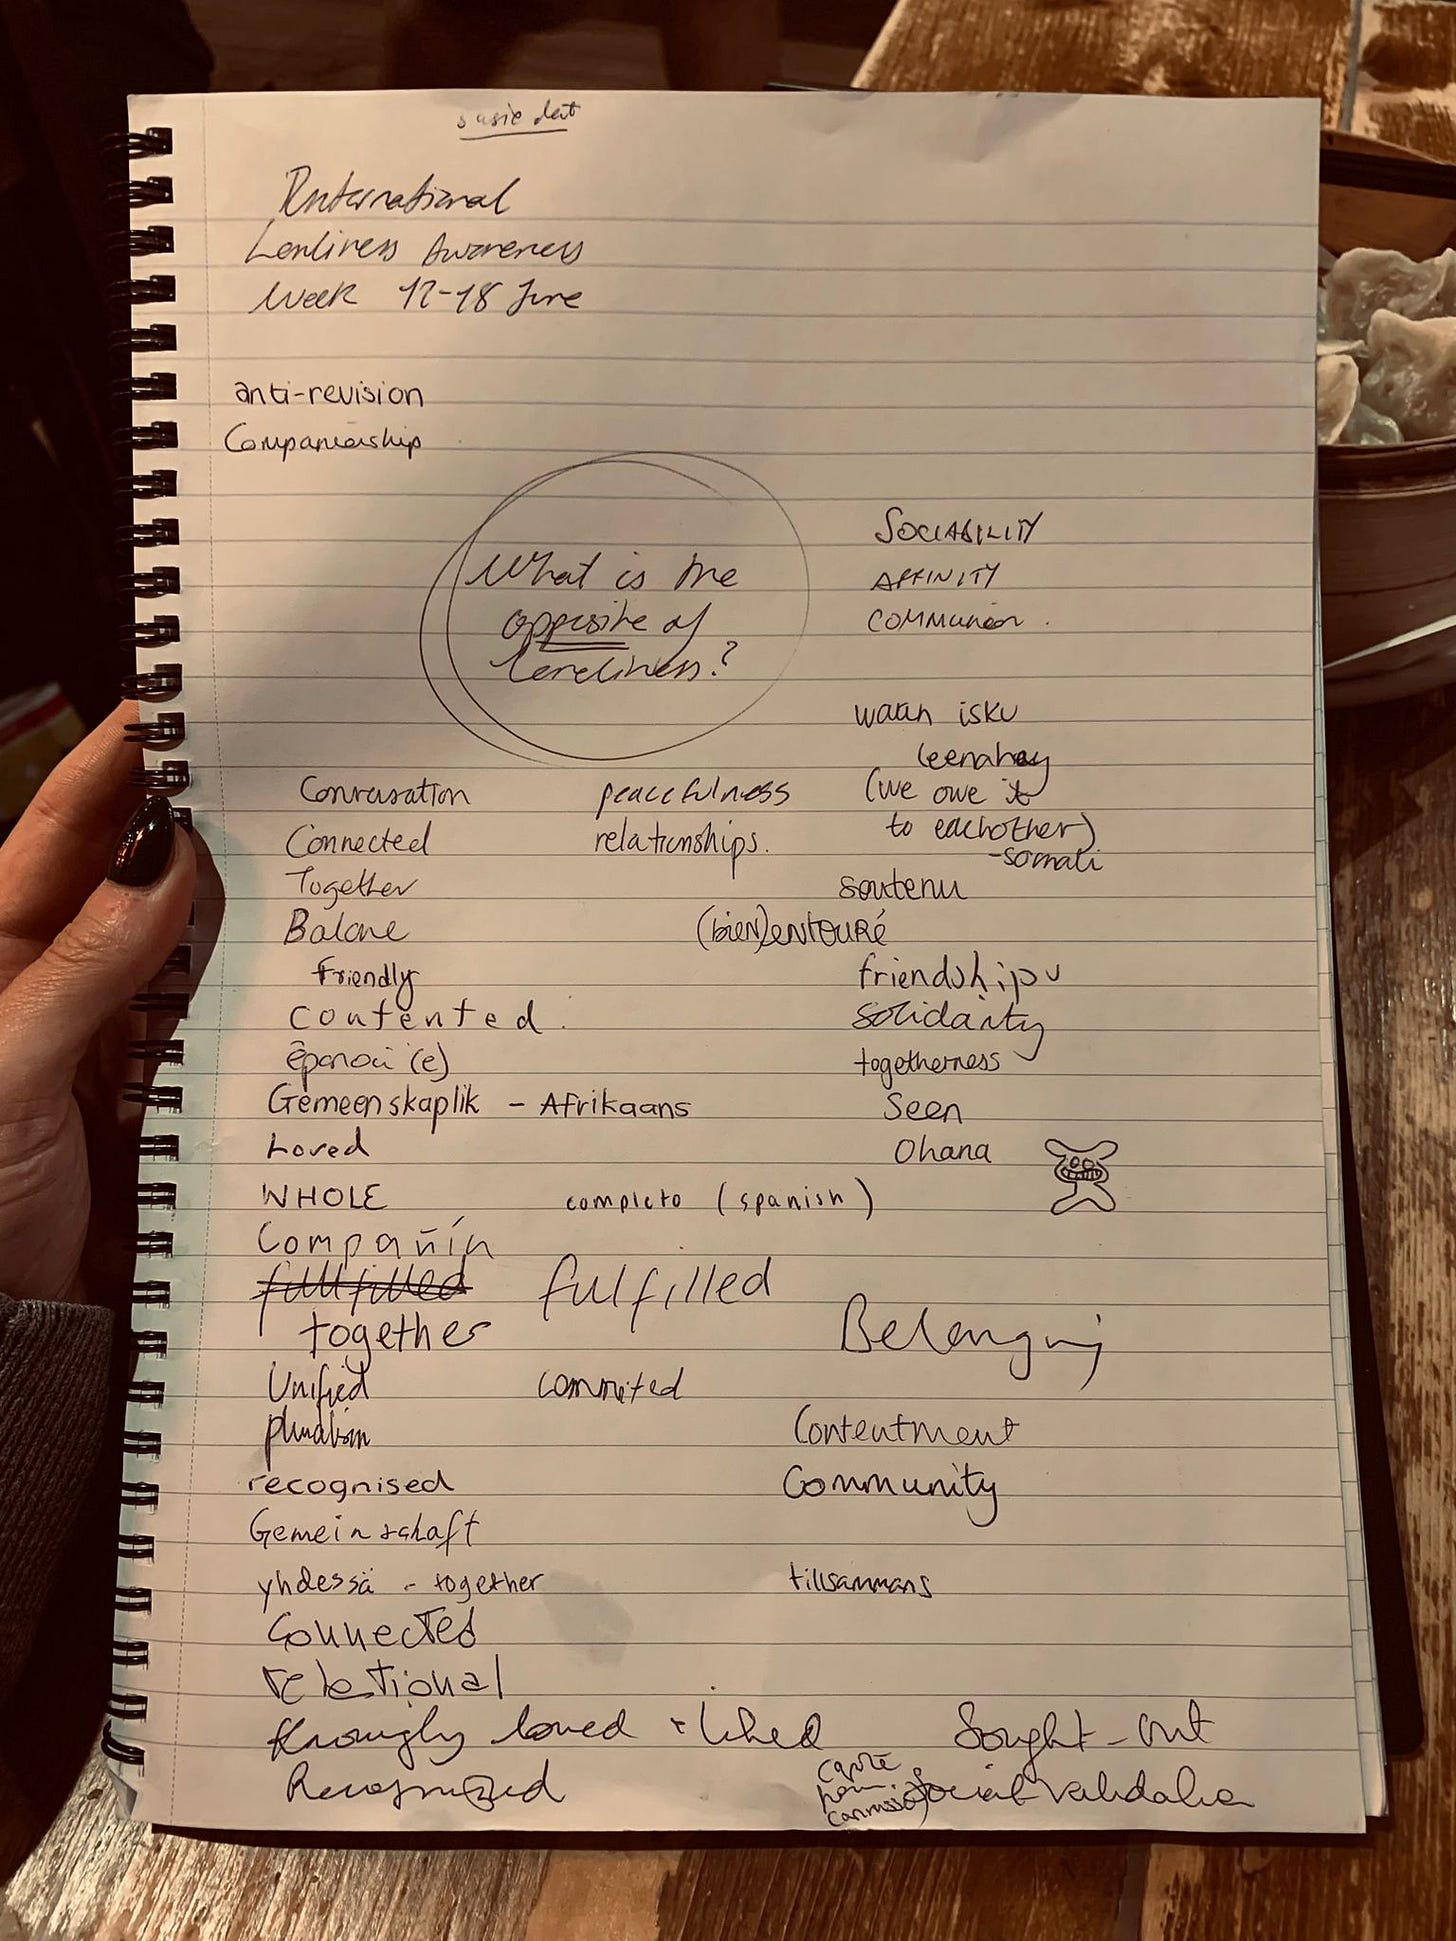 International
Lonliness Awareness
Week 12-18 June
anti-revision
Companionship
What is the
opposite of
loneliness?
SOCIABILITY
AFFINITY
COMMUNION.
waan isku
leenahay
(we owe it
to eachother)
-somali
Conversation peacefulness
Connected relationships.
Together soutenu
Balance (bien)entouré
Friendly friendships
contented. solidarity
togetherness
Gemeenskaplik - Afrikaans Seen
Loved Ohana
WHOLE completo (spanish)
fullfilled fulfilled
together Belonging
Unified commited
pluralism Contentment
recognised Community
Gemeinschaft
yhdessä - together tillsammans
Connected
relational
loved + liked Sought-out
Recognized Social validation